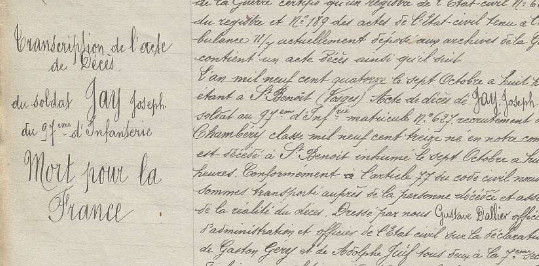 Transcription de l'acte
de Décès
du soldat Jay Joseph
du 97ème d'Infanterie
Mort pour la
France
de la Guerre certifie qu'un registre de l'Etat civil N°
du registre et N° 189 des actes de l'Etat-civil tenu à l'
bulance 11/7 actuellement déposé aux archives de la G
contient un acte Décès ainsi qu'il suit
L'an mil neuf cent quatorze le sept Octobre à huit h
étant à St Benoît (Vosges) Acte de décès de Jay Joseph
soldat au 97ème d'Infrie matricule N° 627 recrutement
Chambéry classe mil neuf cent treize né en notre com
est décédé à St Benoît inhumé le sept Octobre à hui
heures. Conformément à l'article 77 du code civil nous
sommes transporté auprès de la personne décédée et ass
de la réalité du décès. Dressé par nous Gustave Dallier offici
d'administration et officier de l'Etat civil sur la déclarat
de Gaston Gery et de Adolphe tous deux à la 7ème